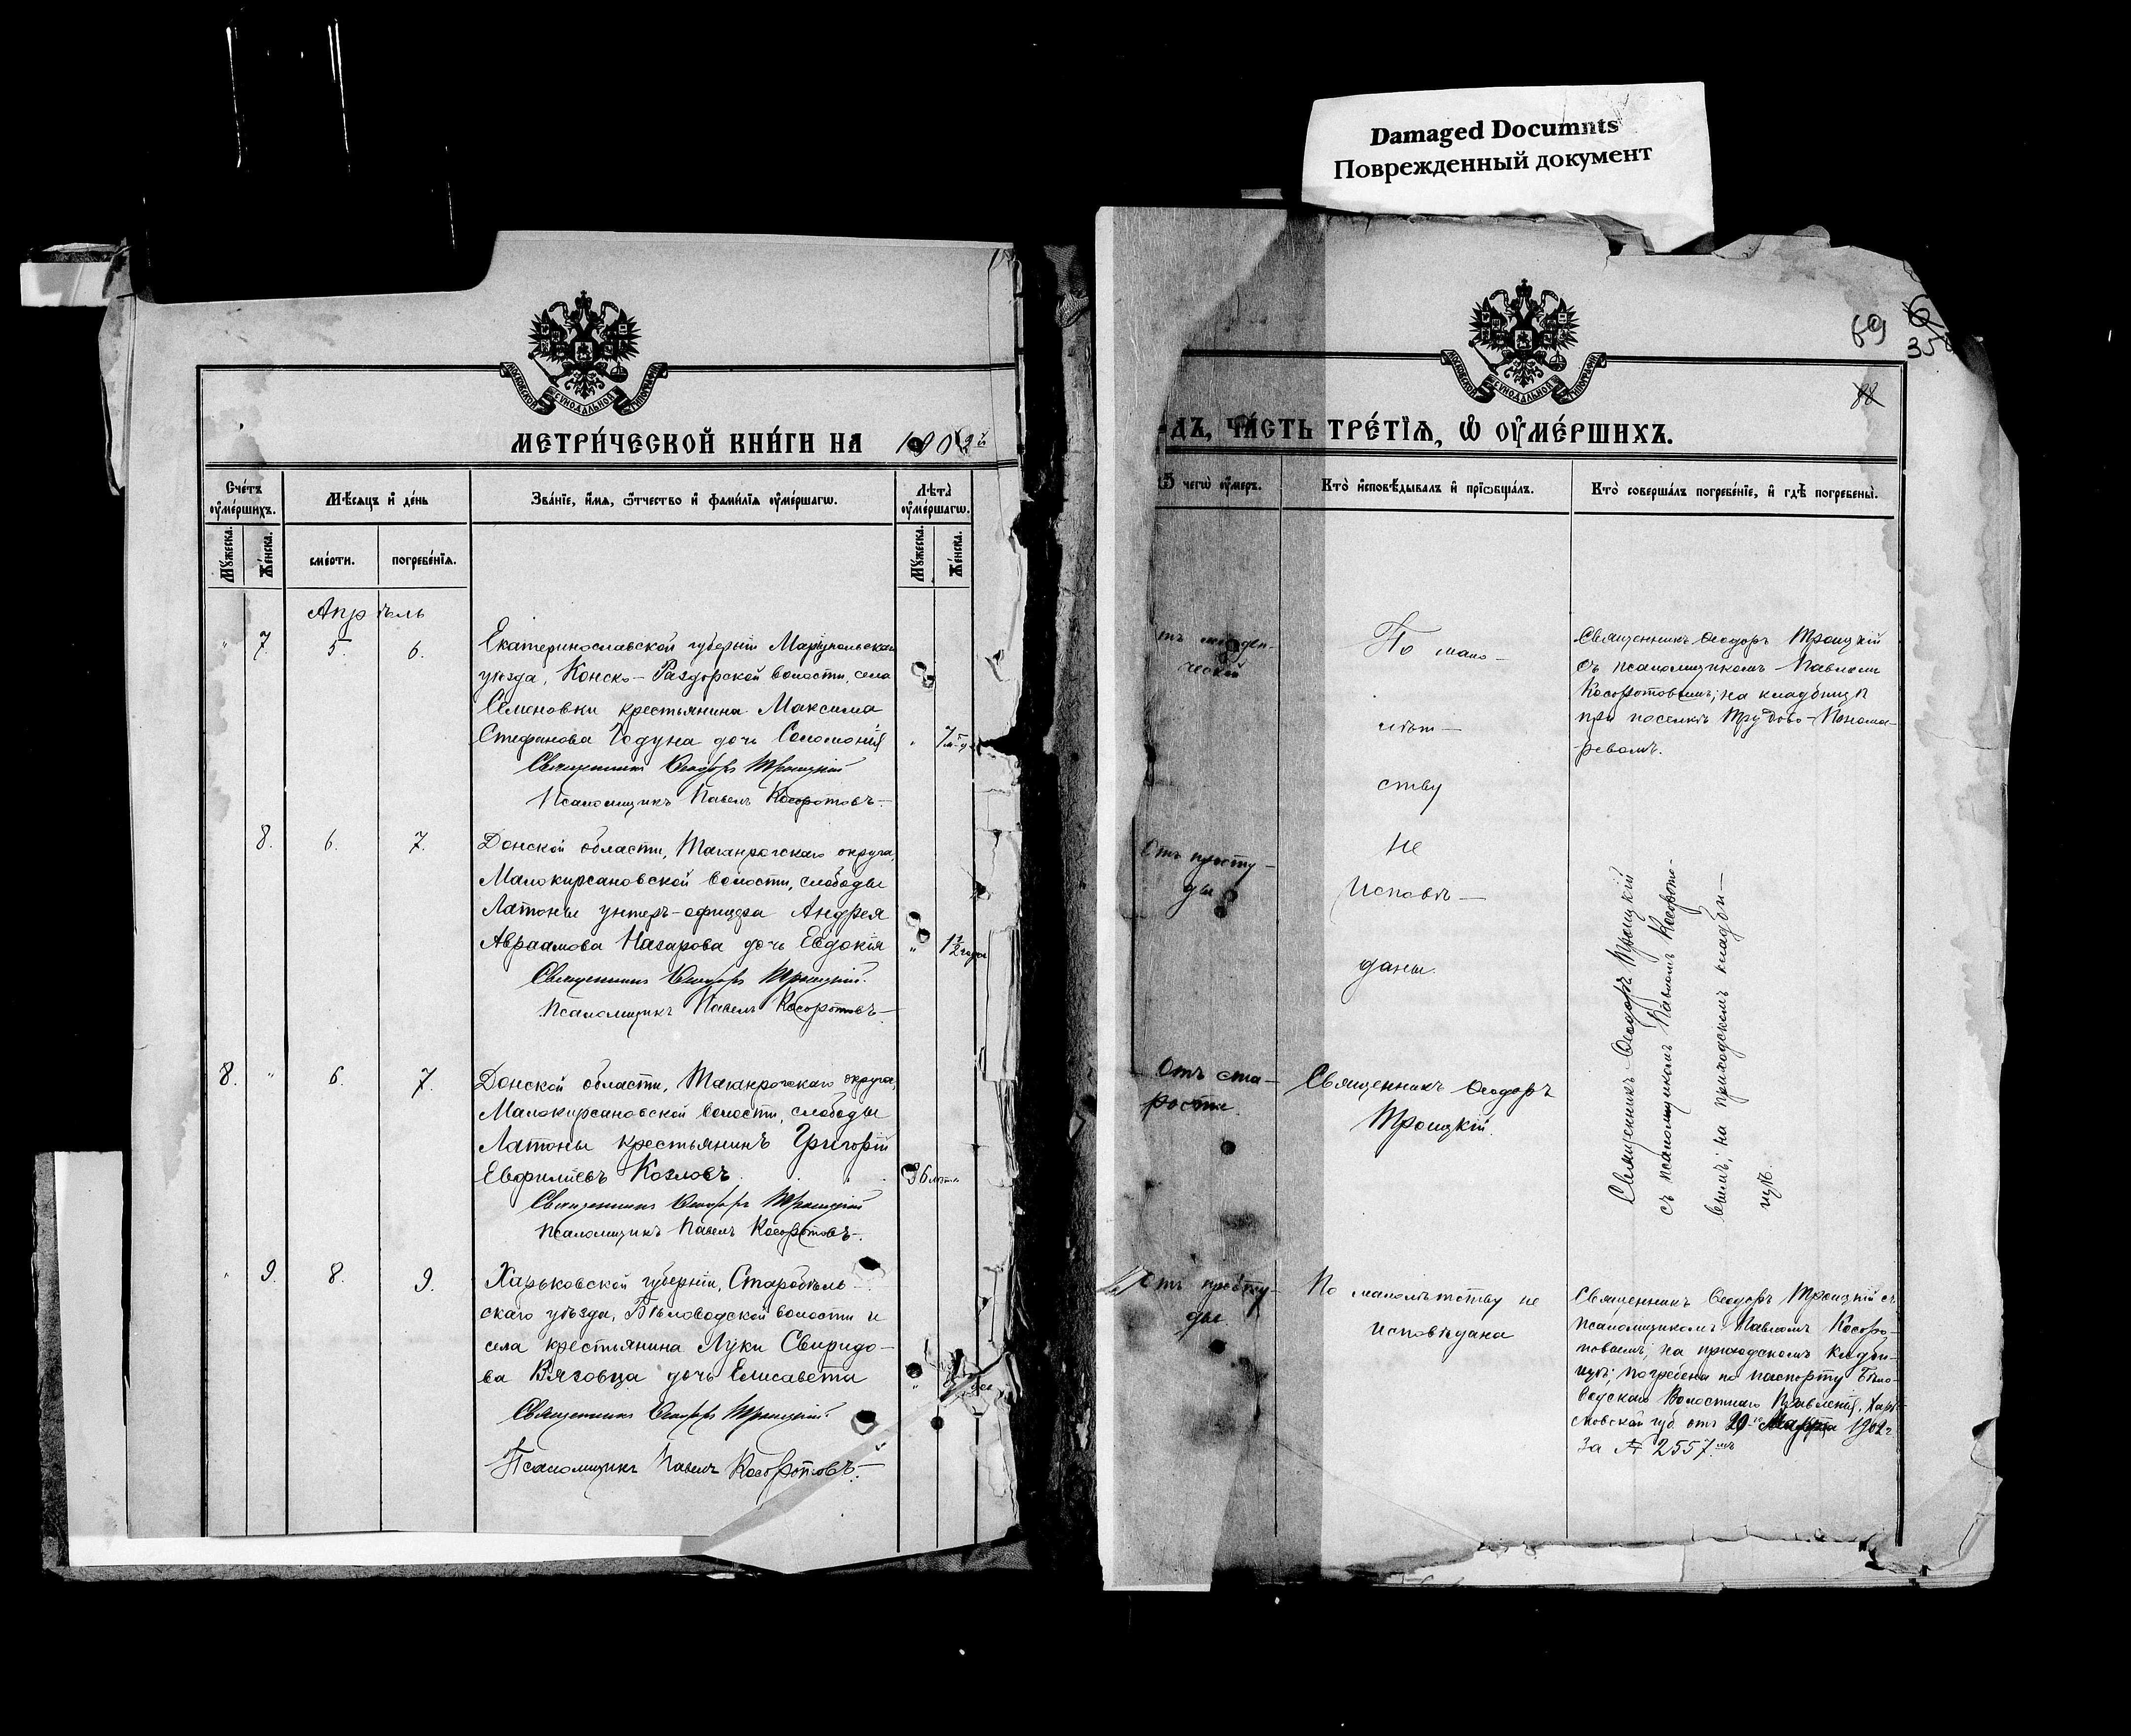 Damaged Documnts
Поврежденный документ
МЕТРИ́ЧЕСКОЙ КНИ́ГИ НА
Сче́тъ оу҆ме́ршихъ.
Мѣ́сяцъ и҆ де́нь
Зва́нїе, и҆́мя, ѻ҆́тчество и҆ фами́лїя оу҆ме́ршагѡ.
Лѣ́та оу҆ме́ршагѡ.
Мꙋ́жеска.
Же́нска.
сме́рти.
погребе́нїя.
Мꙋ́жеска.
Же́нска.
Апрѣль
7. 5. 6.
Екатеринославской губерніи Маріупольскаго
уѣзда, Конско-Раздорской волости, села
Семеновки крестьянина Максима
Стефанова Годуна дочь Соломонія
Священникъ Ѳеодоръ Троицкій
Псаломщикъ Павелъ Косоротовъ
8. 6. 7.
Донской области, Таганрогскаго округа,
Малокирсановской волости, слободы
Латоны унтеръ-офицера Андрея
Авраамова Назарова дочь Евдокія
1½ года
Священникъ Ѳеодоръ Троицкій.
Псаломщикъ Павелъ Косоротовъ
8. " 6. 7.
Донской области, Таганрогскаго округа,
Малокирсановской волости, слободы
Латоны крестьянинъ Григорій
Евфиміевъ Козловъ.
Священникъ Ѳеодоръ Троицкій
Псаломщикъ Павелъ Косоротовъ.
" 9. 8. 9.
Харьковской губерніи, Старобѣль-
скаго уѣзда, Бѣловодской волости и
села крестьянина Луки Свиридо-
ва Вязовца дочь Елисавета
Священникъ Ѳеодоръ Троицкій.
Псаломщикъ Павелъ Косоротовъ.
69
35
88
ДЪ, ЧА́СТЬ ТРЕ́ТЇЯ, Ѡ҆ ОУ҆МЕ́РШИХЪ.
чегѡ̀ оу҆́меръ.
Кто̀ и҆сповѣ́дывалъ и҆ прїѡбща́лъ.
Кто̀ соверша́лъ погребе́нїе, и҆ гдѣ̀ погребены̀.
По мало-
лѣт-
ству
не
исповѣ-
даны.
Священникъ Ѳеодоръ Троицкій
съ псаломщикомъ Павломъ
Косоротовымъ; на кладбищѣ
при поселкѣ Трудово-Понома-
ревомъ.
Отъ просту-
ды
Священникъ Ѳеодоръ Троицкій
съ псаломщикомъ Павломъ Косорото-
вымъ; на приходскомъ кладби-
щѣ.
Отъ ста-
рости.
Священникъ Ѳеодоръ
Троицкій.
Отъ просту-
ды
По малолѣтству не
исповѣдана
Священникъ Ѳеодоръ Троицкій съ
псаломщикомъ Павломъ Косоро-
товымъ; на приходскомъ кладби-
щѣ; погребена по паспорту Бѣло-
водскаго Волостнаго Правленія, Харь-
ковской губ. отъ 1902 г.
за № 2557.